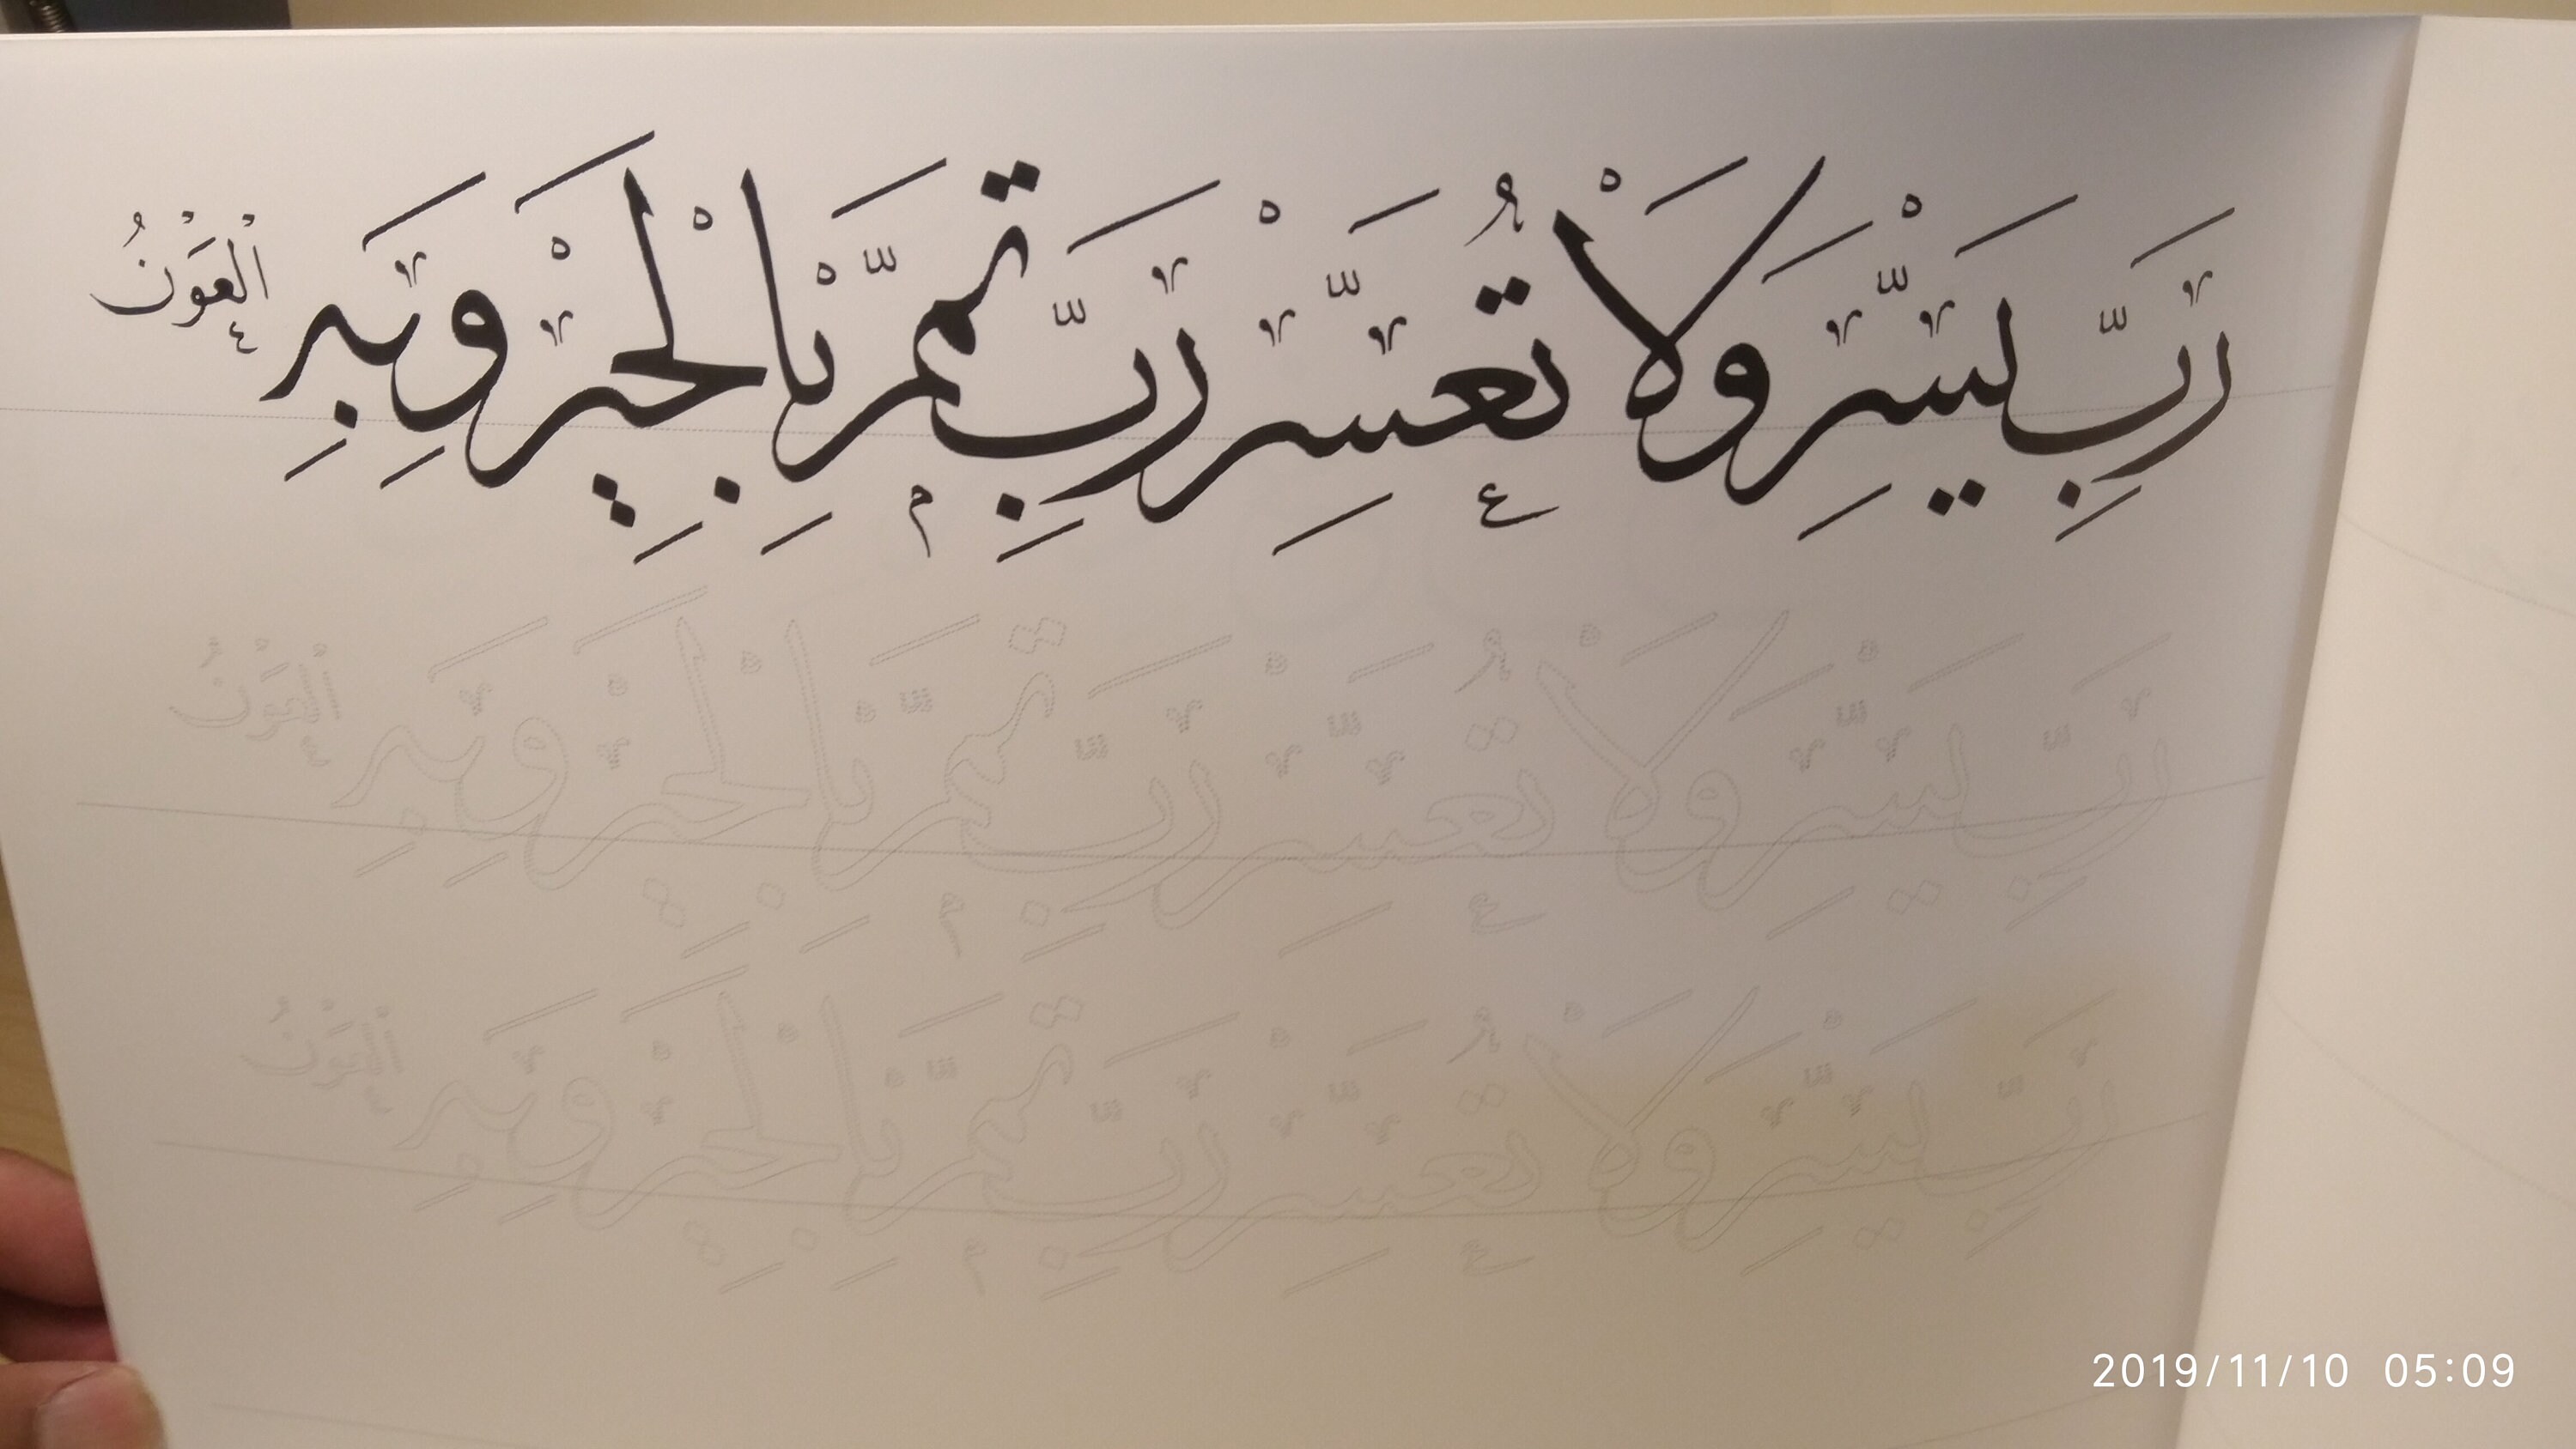 رَبِّ يَسِّرْ وَلَا تُعَسِّرْ رَبِّ تَمِّمْ بِالْخَيْرِ وَبِهِ الْعَوْنُ
رَبِّ يَسِّرْ وَلَا تُعَسِّرْ رَبِّ تَمِّمْ بِالْخَيْرِ وَبِهِ الْعَوْنُ
رَبِّ يَسِّرْ وَلَا تُعَسِّرْ رَبِّ تَمِّمْ بِالْخَيْرِ وَبِهِ الْعَوْنُ
2019/11/10 05:09